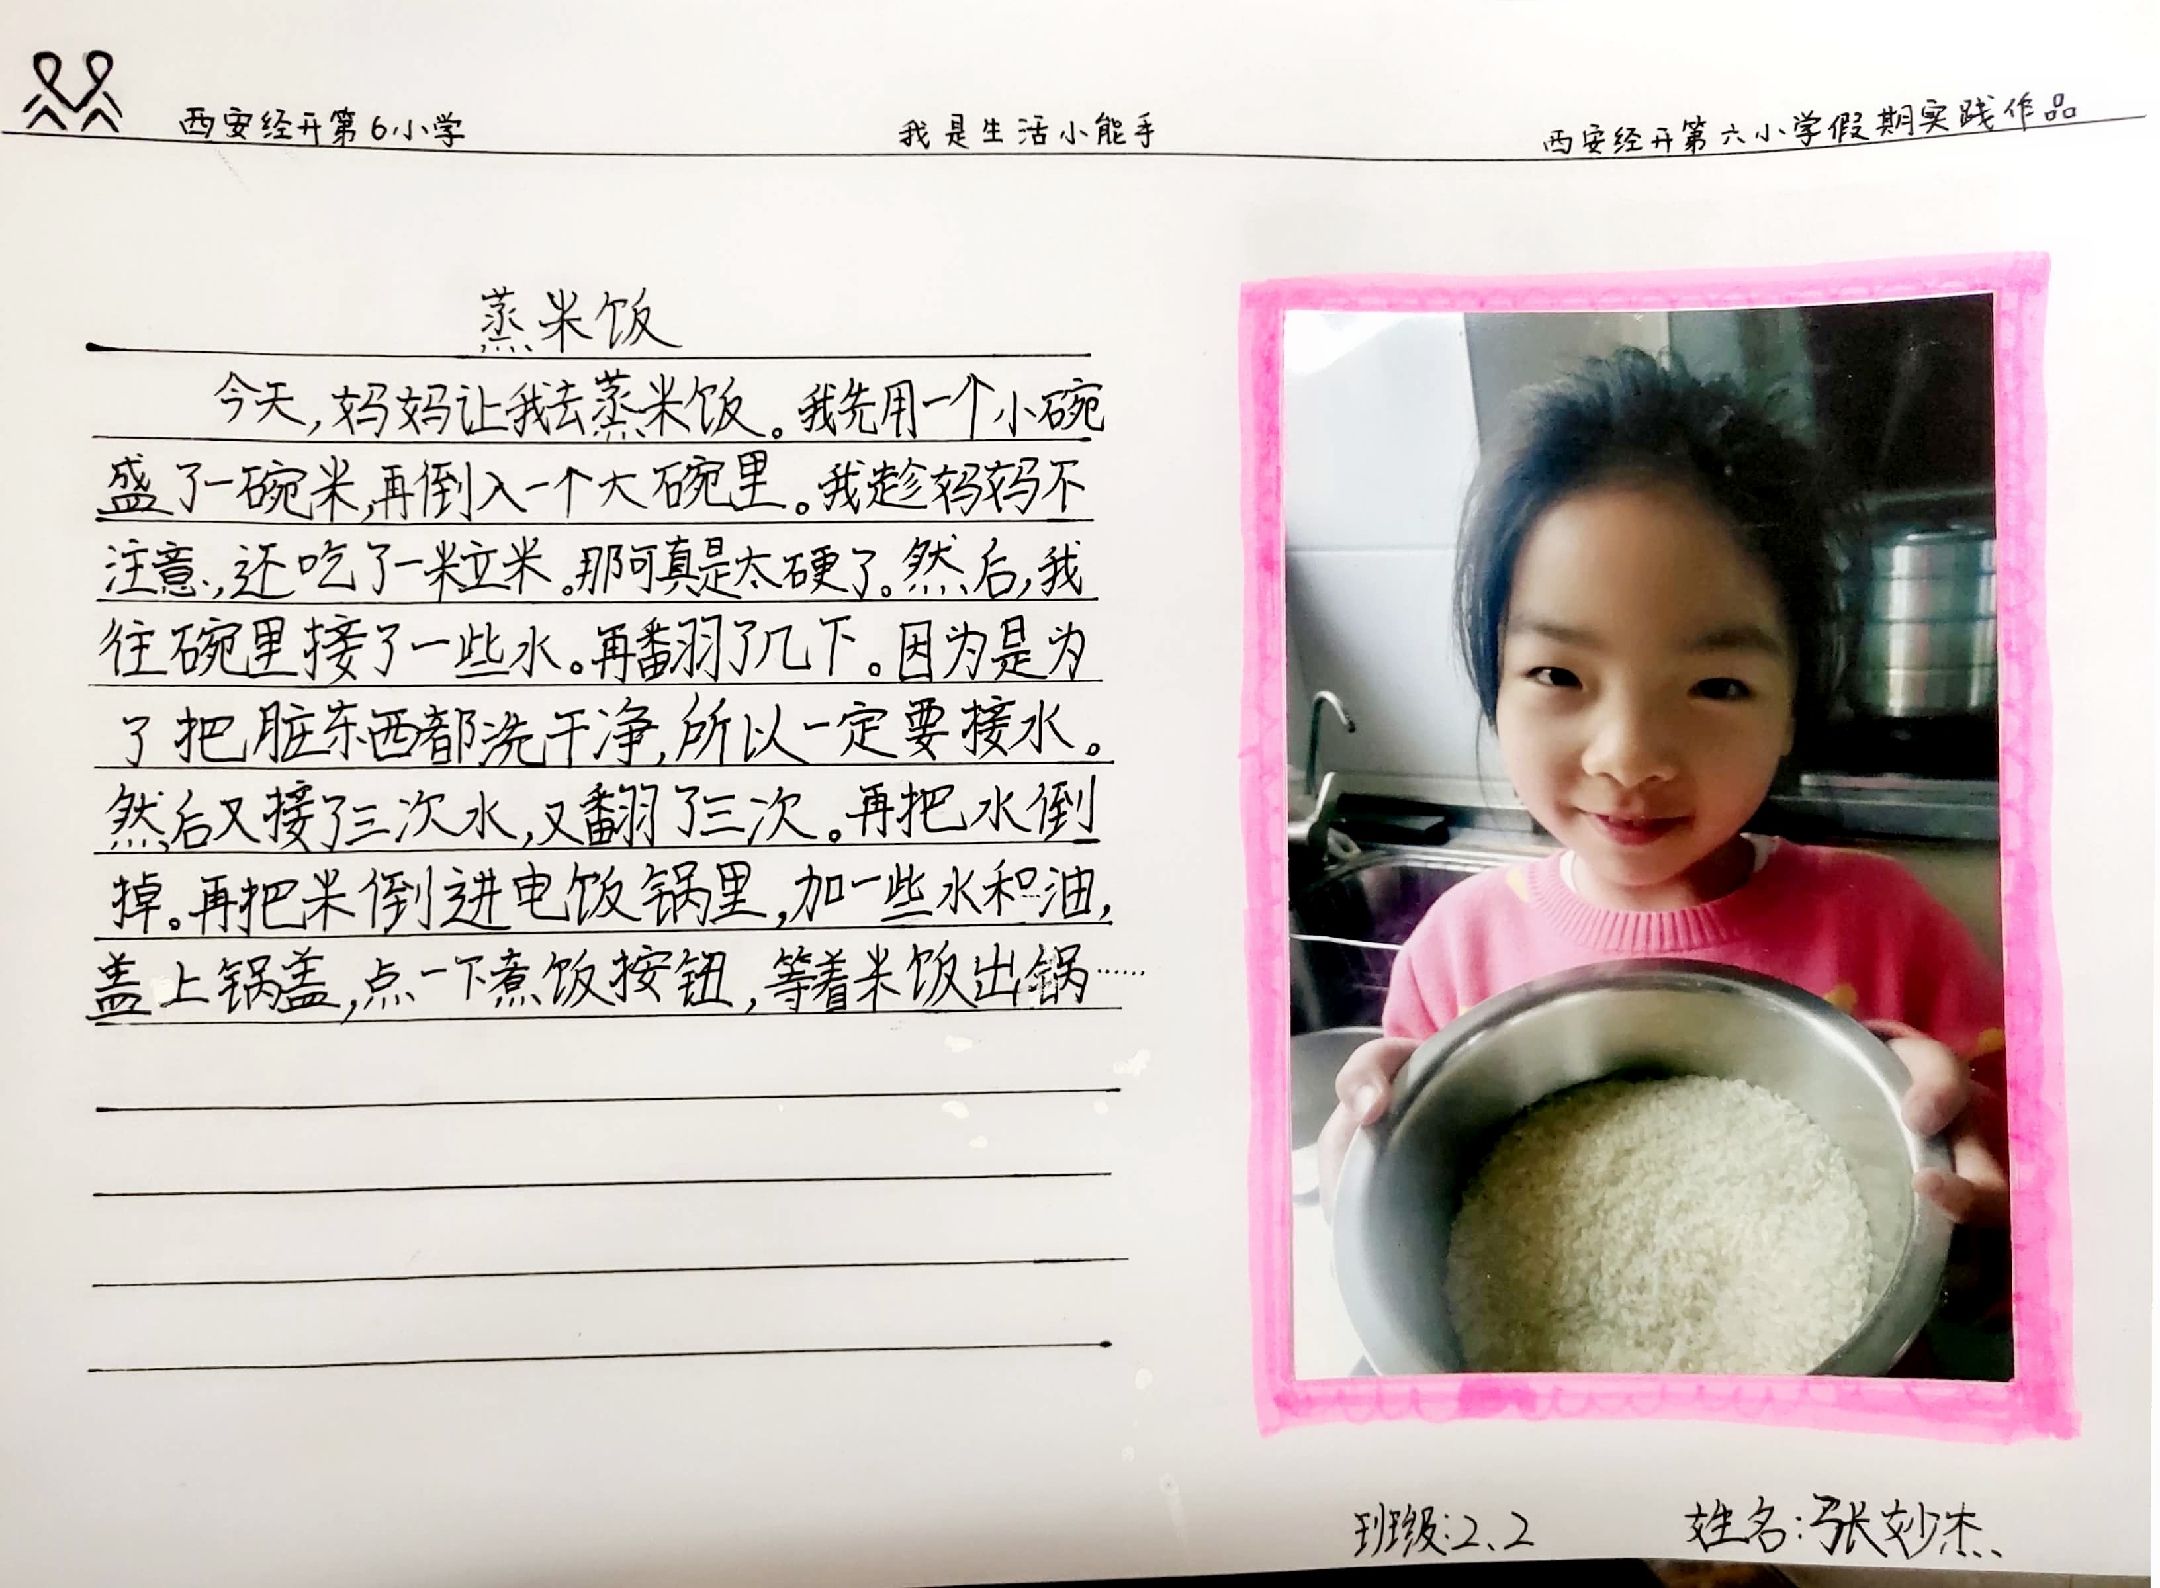 西安经开第6小学
我是生活小能手
西安经开第六小学假期实践作品
蒸米饭
今天，妈妈让我去蒸米饭。我先用一个小碗
盛了一碗米，再倒入一个大碗里。我趁妈妈不
注意，还吃了一粒米。那可真是太硬了。然后，我
往碗里接了一些水。再翻了几下。因为是为
了把脏东西都洗干净，所以一定要接水。
然后又接了三次水，又翻了三次。再把水倒
掉。再把米倒进电饭锅里，加一些水和油，
盖上锅盖，点一下煮饭按钮，等着米饭出锅……
班级：2、2
姓名：张妙杰